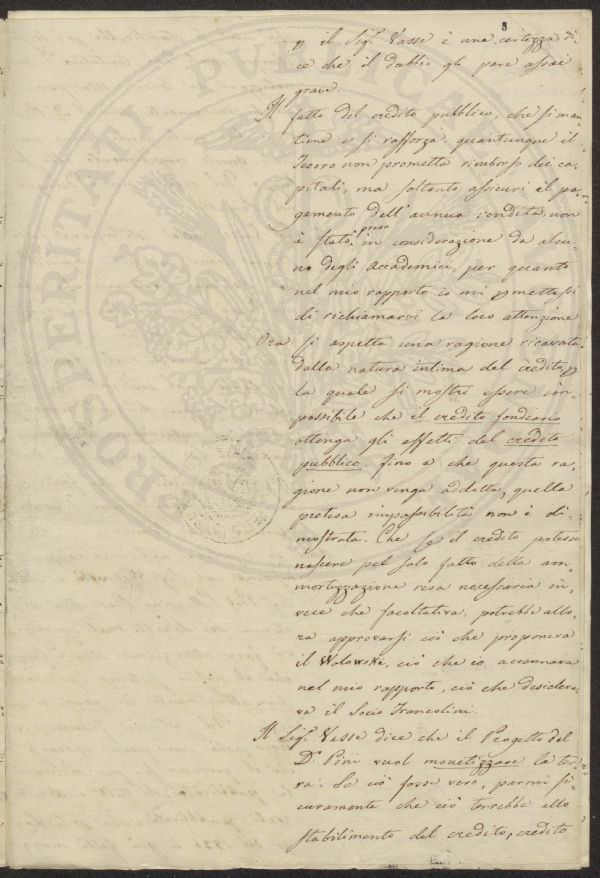 8
p il Sig.r Vasse è una certezza di-
ce che il dubbio gli pare assai
grave.
Il fatto del credito pubblico, che si man-
tiene e si rafforza quantunque il
Tesoro non prometta rimborso dei ca-
pitali, ma soltanto assicuri il pa-
gamento dell'annua rendita, non
è stato preso in considerazione da alcu-
no degli Accademici, per quanto
nel mio rapporto io mi pmettessi
di richiamarvi la loro attenzione
Ora si aspetta una ragione ricavata
dalla natura intima del credito, p
la quale si mostri essere im-
possibile che il credito fondiario
ottenga gli effetti del credito
pubblico. fino a che questa ra-
gione non venga addotta, quella
pretesa impossibilità non è di-
mostrata. Che se il credito potesse
nascere pel solo fatto della am-
mortizzazione resa necessaria in-
vece che facoltativa, potrebbe allo-
ra approvarsi ciò che proponeva
il Wolowski, ciò che io accennava
nel mio rapporto, ciò che desidera-
va il Socio Francolini.
Il Sig.r Vasse dice che il Progetto del
D.r Pini vuol monetizzare la ter-
ra. Se ciò fosse vero, parmi si-
curamente che ciò terrebbe allo
stabilimento del credito; credito
PROSPERITATI PUBLICAE